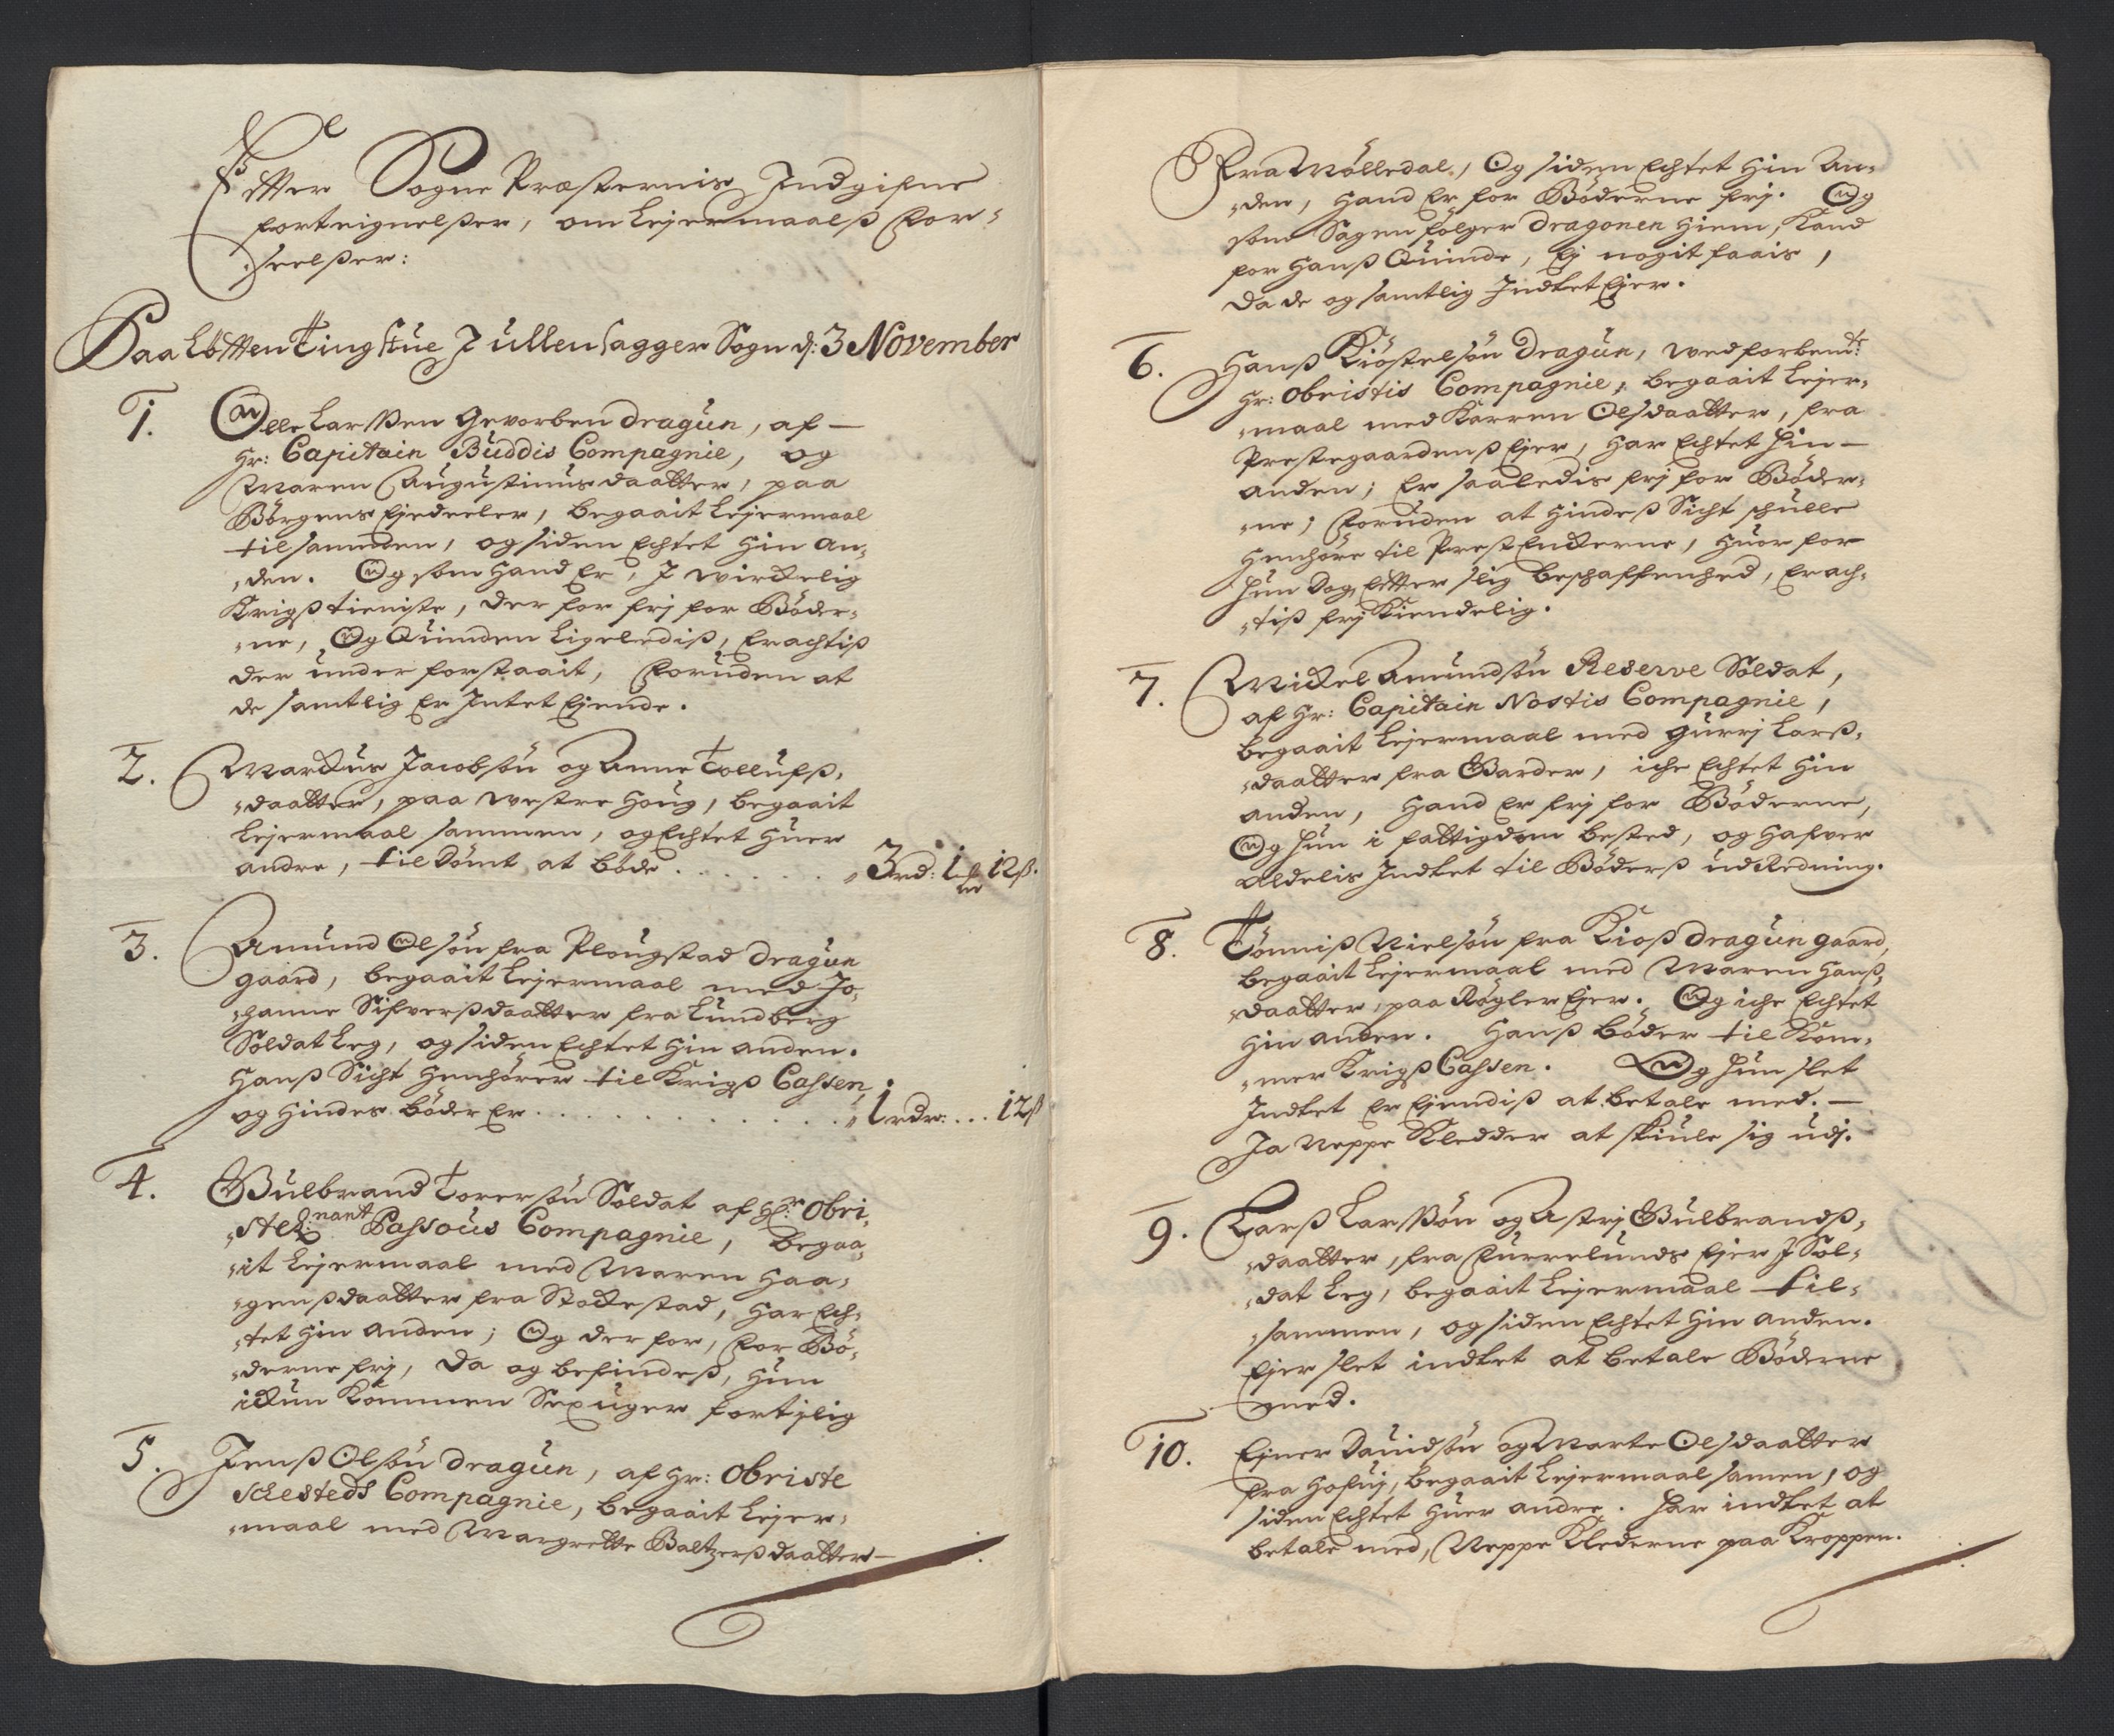 Efter Sogne Præsternis Indgifne
forteignelßer, om Lejermaalß For-
seelßer:
Paa Løtten Tingstue I Ullensagger Sogn d: 3 November
1. Olle Larßen Gevorben dragun, af
Hr: Capitain Buddis Compagnie, og
Maren Augustinusdaatter, paa
Børgens Ejedeeler, begaait Lejermaal
tilsammen, og siden Echtet hin an-
den. Og som hand Er, I wirckelig
Krigß tieniste, der for frj for Bøder-
ne, Og Quinden Ligeledis, Erachtiß
der under forstaait, Foruden at
de samtlig Er Intet Ejende.
2. Marckus Jacobsøn og Anne Tollufß-
daatter, paa westre Houg, begaait
Lejermaal sammen, og Echtet huer
andre, til Dømt at bøde . . . . . . 3 rd: 1 ort 12 ß.
3. Amund Olsøn fra Plougstad dragun
gaard, begaait Lejermaal med Jo-
hanne Sifverßdaatter fra Lundberg
Soldat Leg, og siden Echtet hin anden.
Hanß Sicht henhører til Krigß Cassen,
og hindes bøder Er . . . . . . . . . 1 rdr: . . . 12 ß
4. Gulbrand Torersøn Soldat af Hr: Obri-
stLt:nant Passous Compagnie, begaa-
it Lejermaal med Maren Haa-
genßdaatter fra Stockestad, har Ech-
tet hin anden; Og der for, for Bø-
derne frj, Da og befindeß, hun
ickun kommen Sex uger fortjlig
5. Jenß Olsøn dragun, af Hr: Obriste
Schesteds Compagnie, begaait Lejer-
maal med Margrette Baltzerßdaatter
Fra Mølledal, Og siden Echtet hin An-
den, hand Er for Bøderne frj. Og
som Sagen følger dragonen hiem, Kand
for hanß Quinde, Ej nogit faais,
Da de og samtlig Indtet Ejer.
6. Hanß Kiøstelsøn dragun, wed forbemte:
Hr: Obristis Compagnie, begaait Lejer-
maal med Karren Olsdaatter, fra
Prestegaardenß Ejer, har Echtet hin
anden; Er saaledis frj for Bøder-
ne; Foruden at hindeß Sicht skulle
henhøre til PrestEnckerne, huor for
hun Dog, Efter slig beschaffenhed, Erach-
tiß frj Kiendelig.
7. Mickel Amundsøn Reserve Soldat,
af Hr: Capitain Nostis Compagnie,
begaait Lejermaal med Gurrj Larß-
daatter fra Garder, iche Echtet hin
anden, hand Er frj for Bøderne,
Og hun i fattigdom bested, og hafver
Aldelis Indtet til Bøderß udRedning.
8. Tønniß Nielsøn fra Kioß dragun gaard,
begaait Lejermaal med Maren Hanß-
daatter, paa Røgler Ejer. Og iche Echtet
hin anden. Hanß bøder til Kom-
mer Krigß Cassen. Og hun slet
Indtet Er Ejendiß at betale med.
Ja Neppe Kledder at skiule sig udj.
9. Larß Larßøn og Astrj Gulbrandß-
daatter, fra Furrelunds Ejer I Sol-
dat Leg, begaait Lejermaal til-
sammen, og siden Echtet hin anden.
Ejer slet indtet at betale Bøderne
med.
10. Ejner Dauidsøn og Marte Olsdaatter
fra Hofuj, begaait Lejermaal samen, og
siden Echtet huer andre. har indtet at
betale med, Neppe Klederne paa Kroppen.